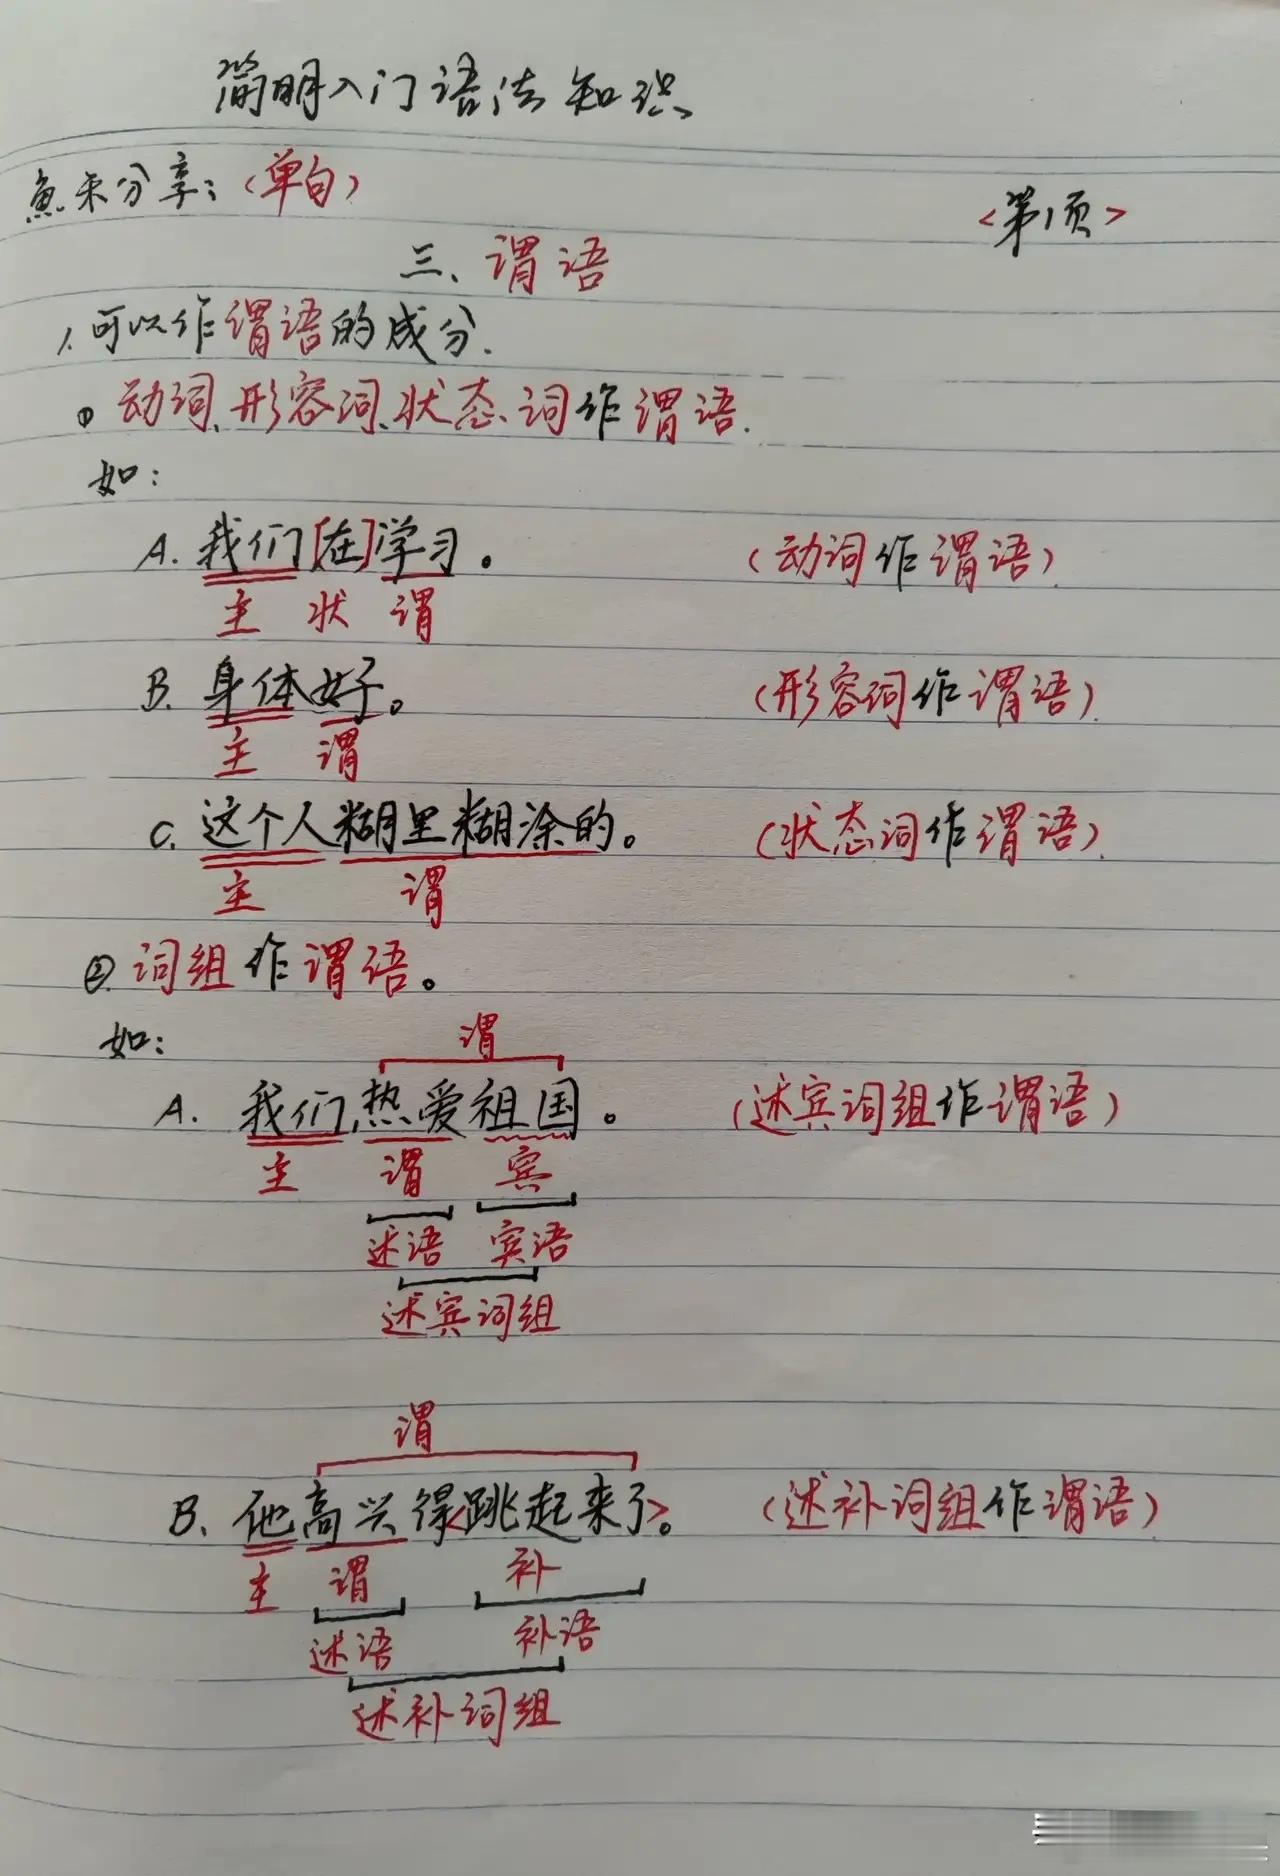 简明入门语法知识
魚禾分享：〈单句〉
〈第1页〉
三、谓语
1.可以作谓语的成分.
①动词、形容词、状态词作谓语.
如：
A.我们[在]学习。 (动词作谓语)
主 状 谓
B.身体好。 (形容词作谓语)
主 谓
C.这个人糊里糊涂的。 (状态词作谓语)
主 谓
②词组作谓语。
如：
谓
A.我们热爱祖国。 (述宾词组作谓语)
主 谓 宾
述语 宾语
述宾词组
谓
B.他高兴得<跳起来了>。 (述补词组作谓语)
主 谓 补
述语 补语
述补词组